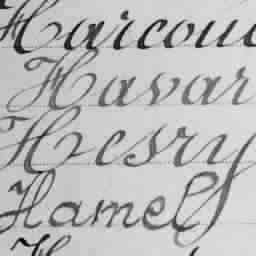 Harcou
Havar
Hesry
Hamel